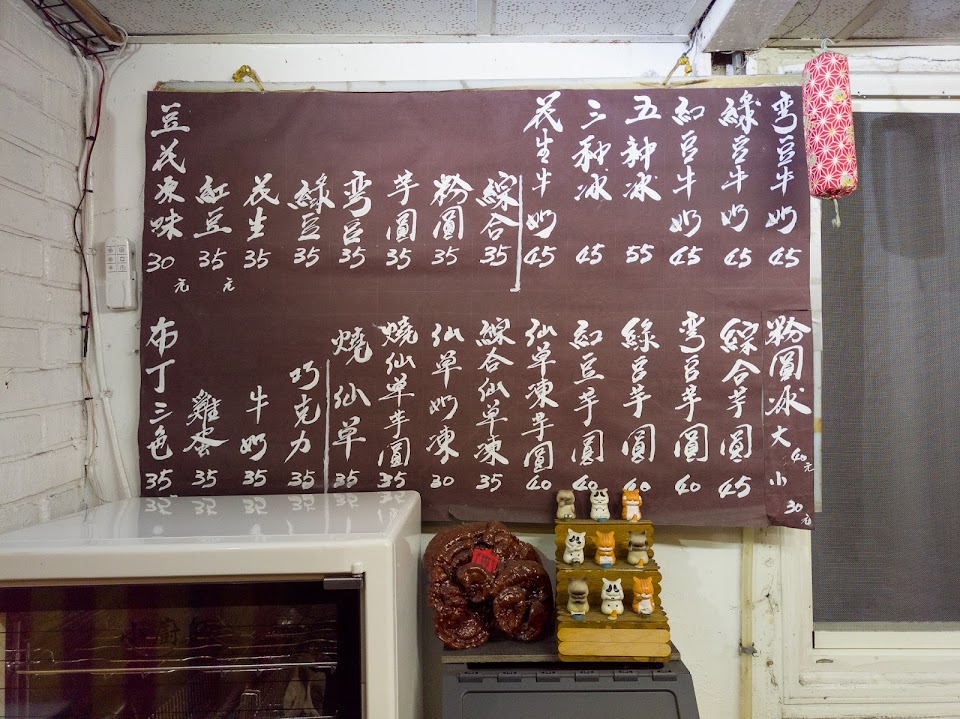 豆花原味 30元
紅豆 35元
花生 35
綠豆 35
弯豆 35
芋圓 35
粉圓 35
綜合 35
花生牛奶 45
三種冰 45
五種冰 55
紅豆牛奶 45
綠豆牛奶 45
弯豆牛奶 45
布丁三色 35
雞蛋 35
牛奶 35
巧克力 35
燒仙草 35
燒仙草芋圓 35
仙草奶凍 30
綜合仙草凍 35
仙草凍芋圓 40
紅豆芋圓 40
綠豆芋圓 40
弯豆芋圓 40
綜合芋圓 45
粉圓冰大 40元
小 30元